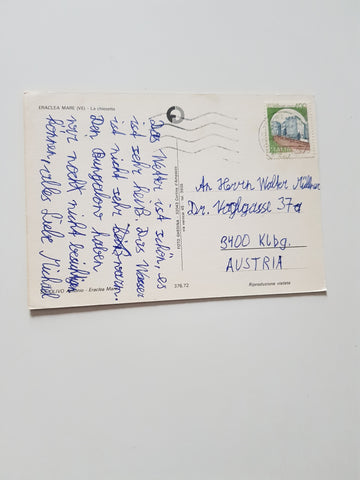 ERACLEA MARE (VE) - La chiesetta
Das Wetter ist schön, es
ist sehr heiß. Das Wasser
ist nicht sehr warm.
Den Bungalow haben
wir noch nicht beziehen
können, alles Liebe Michael
Eraclea Mare
FOTO GARDINA
376.72
400
ITALIA
An Herrn Walter Müllner
Dr. Voglgasse 37a
3400 Klbg.
AUSTRIA
Riproduzione vietata